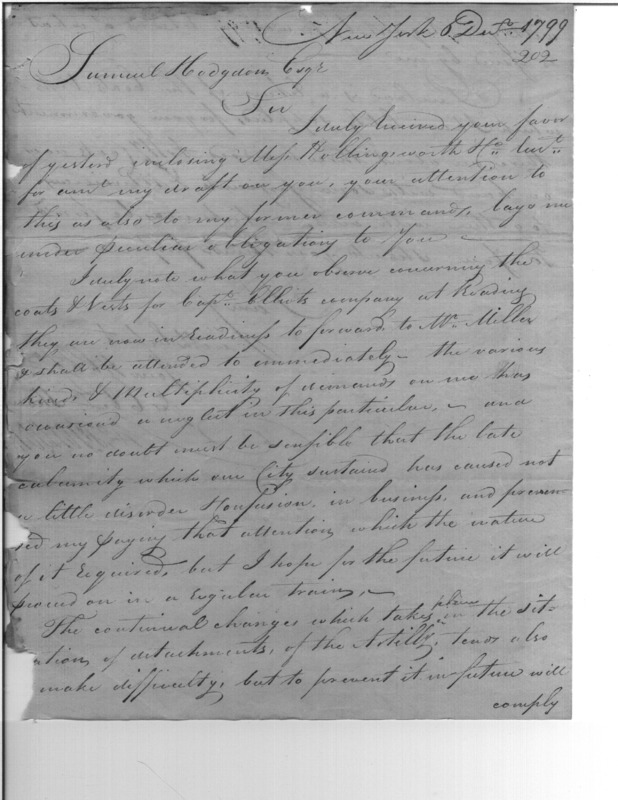 New York 6 Decr. 1799
202
Samuel Hodgdon Esqr
Sir
I duly received your favor
of yesterd inclosing Mess Hollingsworth &
for amt. my draft on you, your attention to
this as also to my former commands, lays me
under peculiar obligations to You
I duly note what you observe concerning the
coats & Vests for Capt. Elliots company at Reading
they are now in readiness to forward to Mr. Miller
& shall be attended to immediately - the various
kinds & Multiplicity of demands on me has
occasioned a neglect in this particular, - and
you no doubt must be sensible that the late
calamity which our City sustaind has caused not
a little disorder & confusion in business, and preven-
ted my paying that attention which the nature
of it required, but I hope for the future it will
proceed on in a regular train, -
The continual changes which takes place in the sit-
uation, of detachments, of the Artilly. tends also
make difficulty, but to prevent it in future will
comply